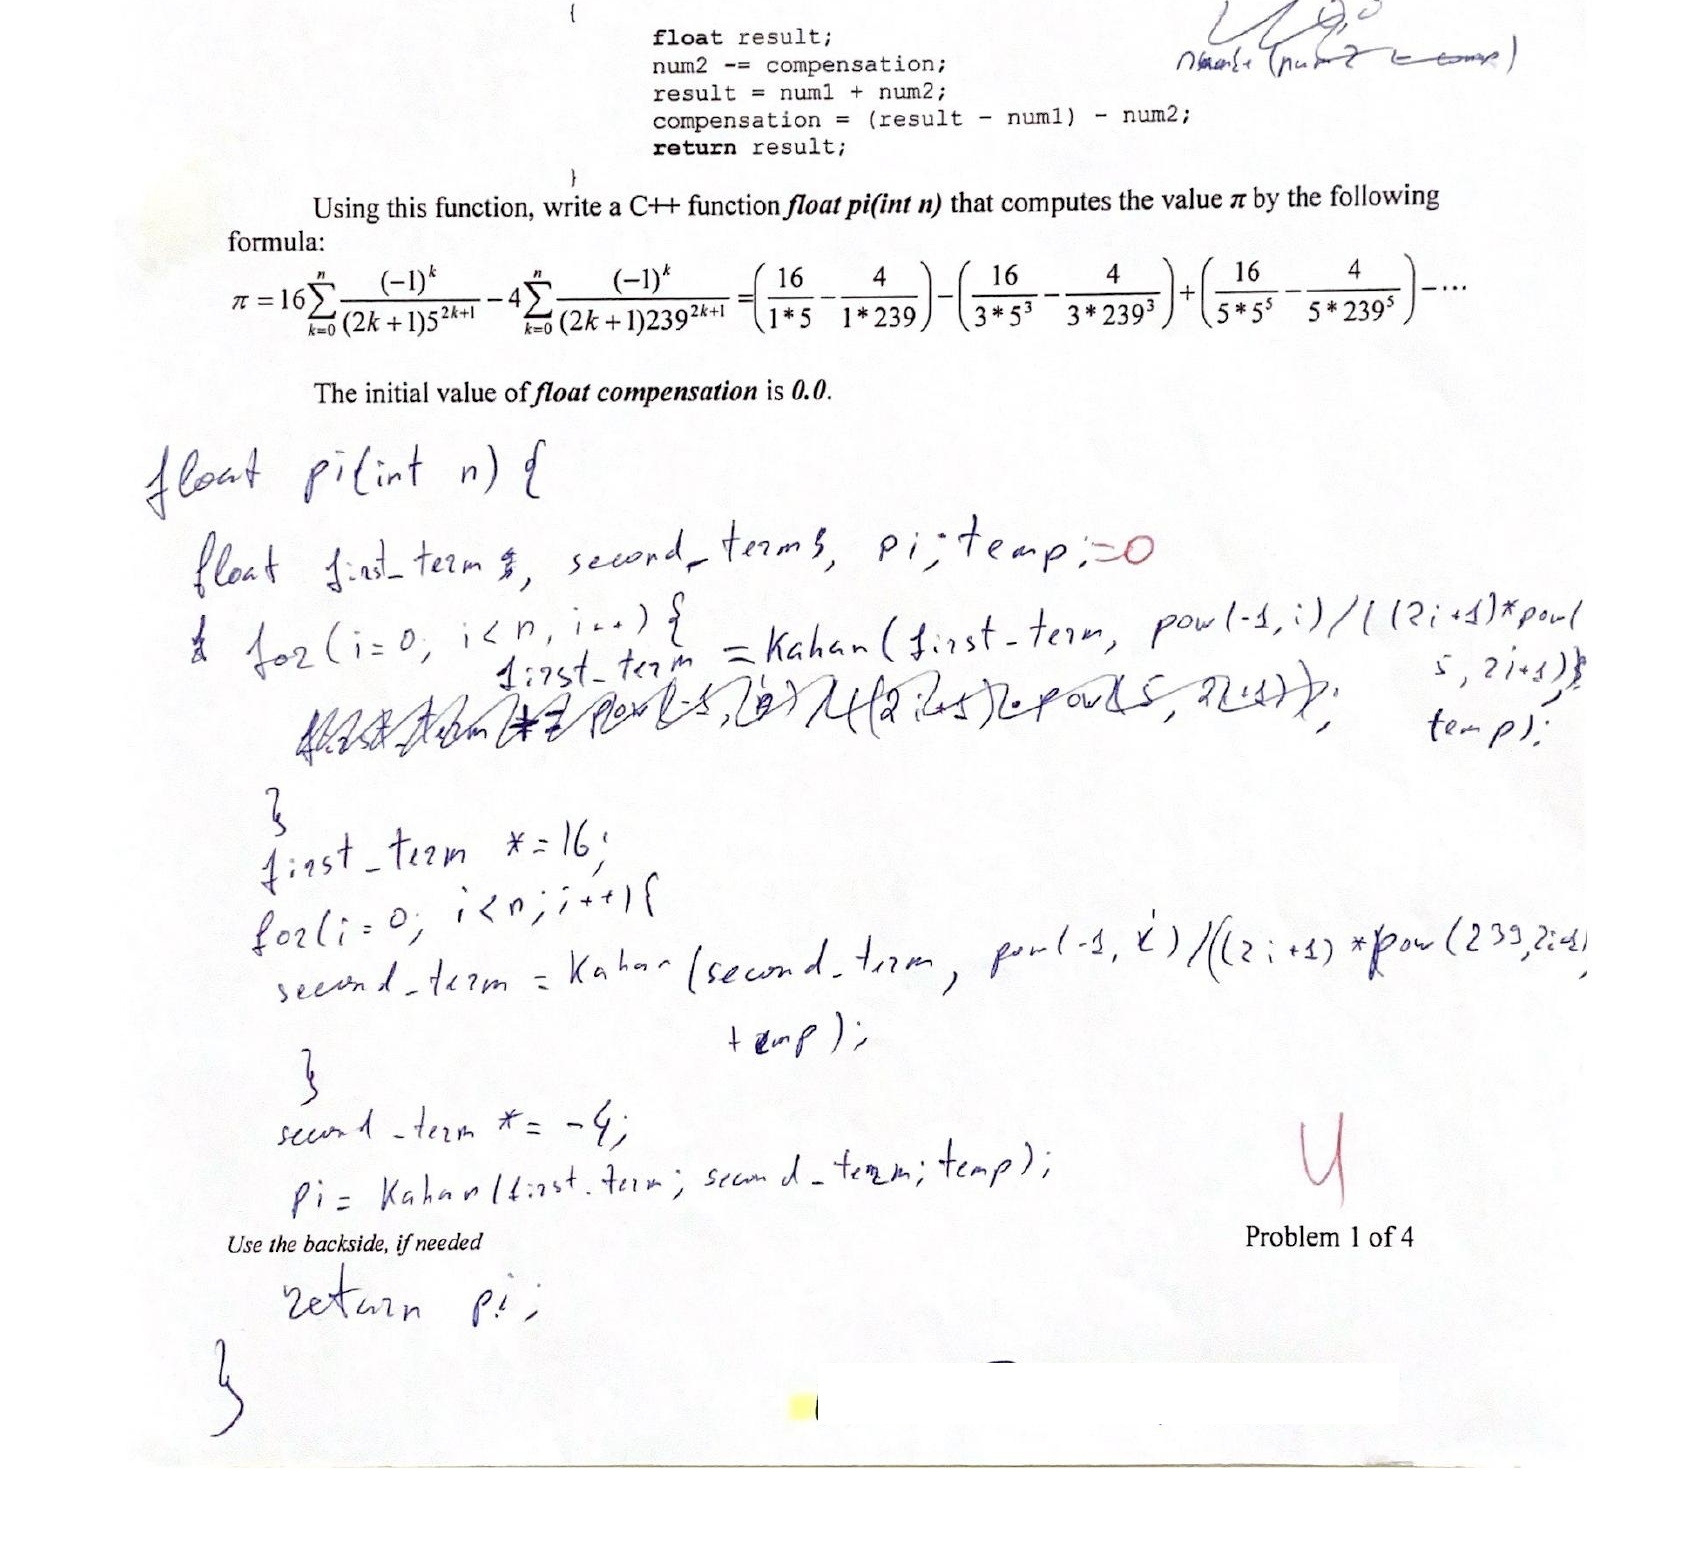 {
float result;
num2 -= compensation;
result = num1 + num2;
compensation = (result - num1) - num2;
return result;
}
Using this function, write a C++ function float pi(int n) that computes the value π by the following
formula:
π = 16 ∑_{k=0}^{n} (-1)^k / ((2k+1)5^{2k+1}) - 4 ∑_{k=0}^{n} (-1)^k / ((2k+1)239^{2k+1}) = (16/(1*5) - 4/(1*239)) - (16/(3*5^3) - 4/(3*239^3)) + (16/(5*5^5) - 4/(5*239^5)) - ...
The initial value of float compensation is 0.0.
float pi(int n) {
float first_term, second_term, pi; temp; =0
for (i=0; i<n, i++) {
first_term = Kahan (first_term, pow(-1,i)/((2i+1)*pow(
5, 2i+1))
temp);
}
first_term *= 16;
for(i=0; i<n; i++){
second_term = Kahan (second_term, pow(-1, i)/((2i+1)*pow(239,2i+1)
temp);
}
second_term *= -4;
pi = Kahan(first_term; second_term; temp);
4
Use the backside, if needed
Problem 1 of 4
return pi;
}